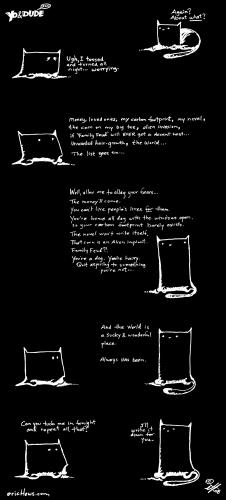 YO & DUDE
Ugh, I tossed
and turned all
night... worrying.
Again?
About what?
Money, loved ones, my carbon footprint, my novel,
the corn on my big toe, alien invasion,
if "Family Feud" will EVER get a decent host...
Unwanted hair-growth, the World...
The list goes on...
Well, allow me to allay your fears...
The money'll come.
You can't live people's lives for them.
You're home all day with the windows open,
so your carbon footprint barely exists.
The novel won't write itself.
That corn is an Alien implant.
Family Feud?!
You're a dog. You're hairy.
Quit aspiring to something
you're not...
And the World is
a sucky & wonderful
place.
Always has been.
Can you tuck me in tonight
and repeat all that?
I'll
write it
down for
you...
erichews.com